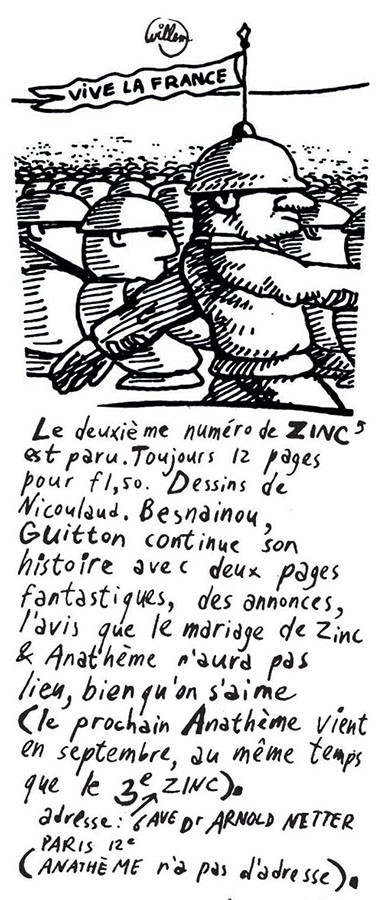 Willem
VIVE LA FRANCE
Le deuxième numéro de ZINC 5
est paru. Toujours 12 pages
pour f1,50. Dessins de
Nicoulaud. Besnainou,
Guitton continue son
histoire avec deux pages
fantastiques, des annonces,
l'avis que le mariage de Zinc
& Anathème n'aura pas
lieu, bien qu'on s'aime
(le prochain Anathème vient
en septembre, au même temps
que le 3e ZINC).
adresse: 6 AVE Dr ARNOLD NETTER
PARIS 12e
(ANATHÈME n'a pas d'adresse).